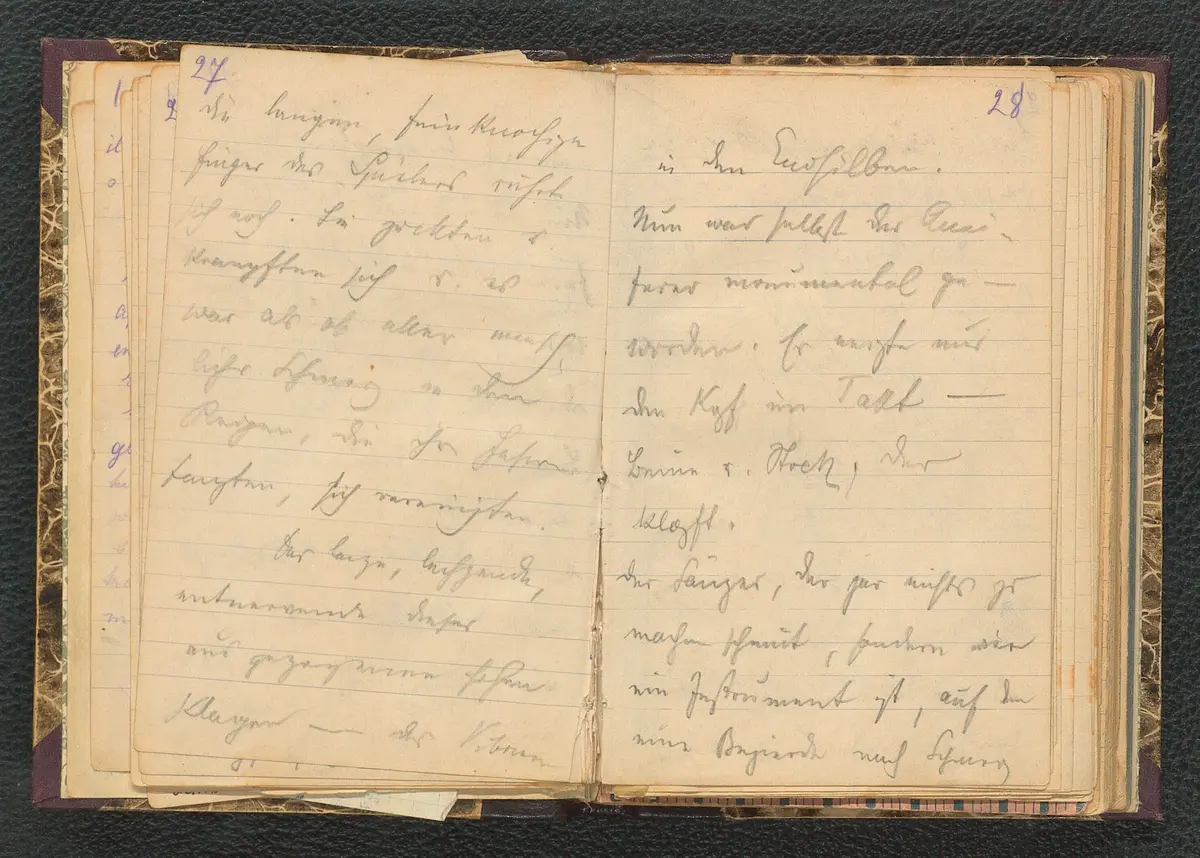 27
die langen, feinknochigen
Finger des Spielers rührten
sich noch. Sie zuckten u.
krampften sich u. es
war als ob aller mensch-
licher Schmerz in den
Reigen, die ihre Fasern
tanzten, sich vereinigten.
Das lange, lechzende,
entnervende dieser
aus gezogenen hohen
Klagen — das Vibrieren
28
in den Endsilben.
Nun war selbst der
monumental ge-
worden. Er neigte nur
den Kopf im Takt —
Beine u. Stock, der
klopft.
der Sänger, der gar nichts zu
machen scheint, sondern wie
ein Instrument ist, auf dem
eine Begierde nach Schmerz